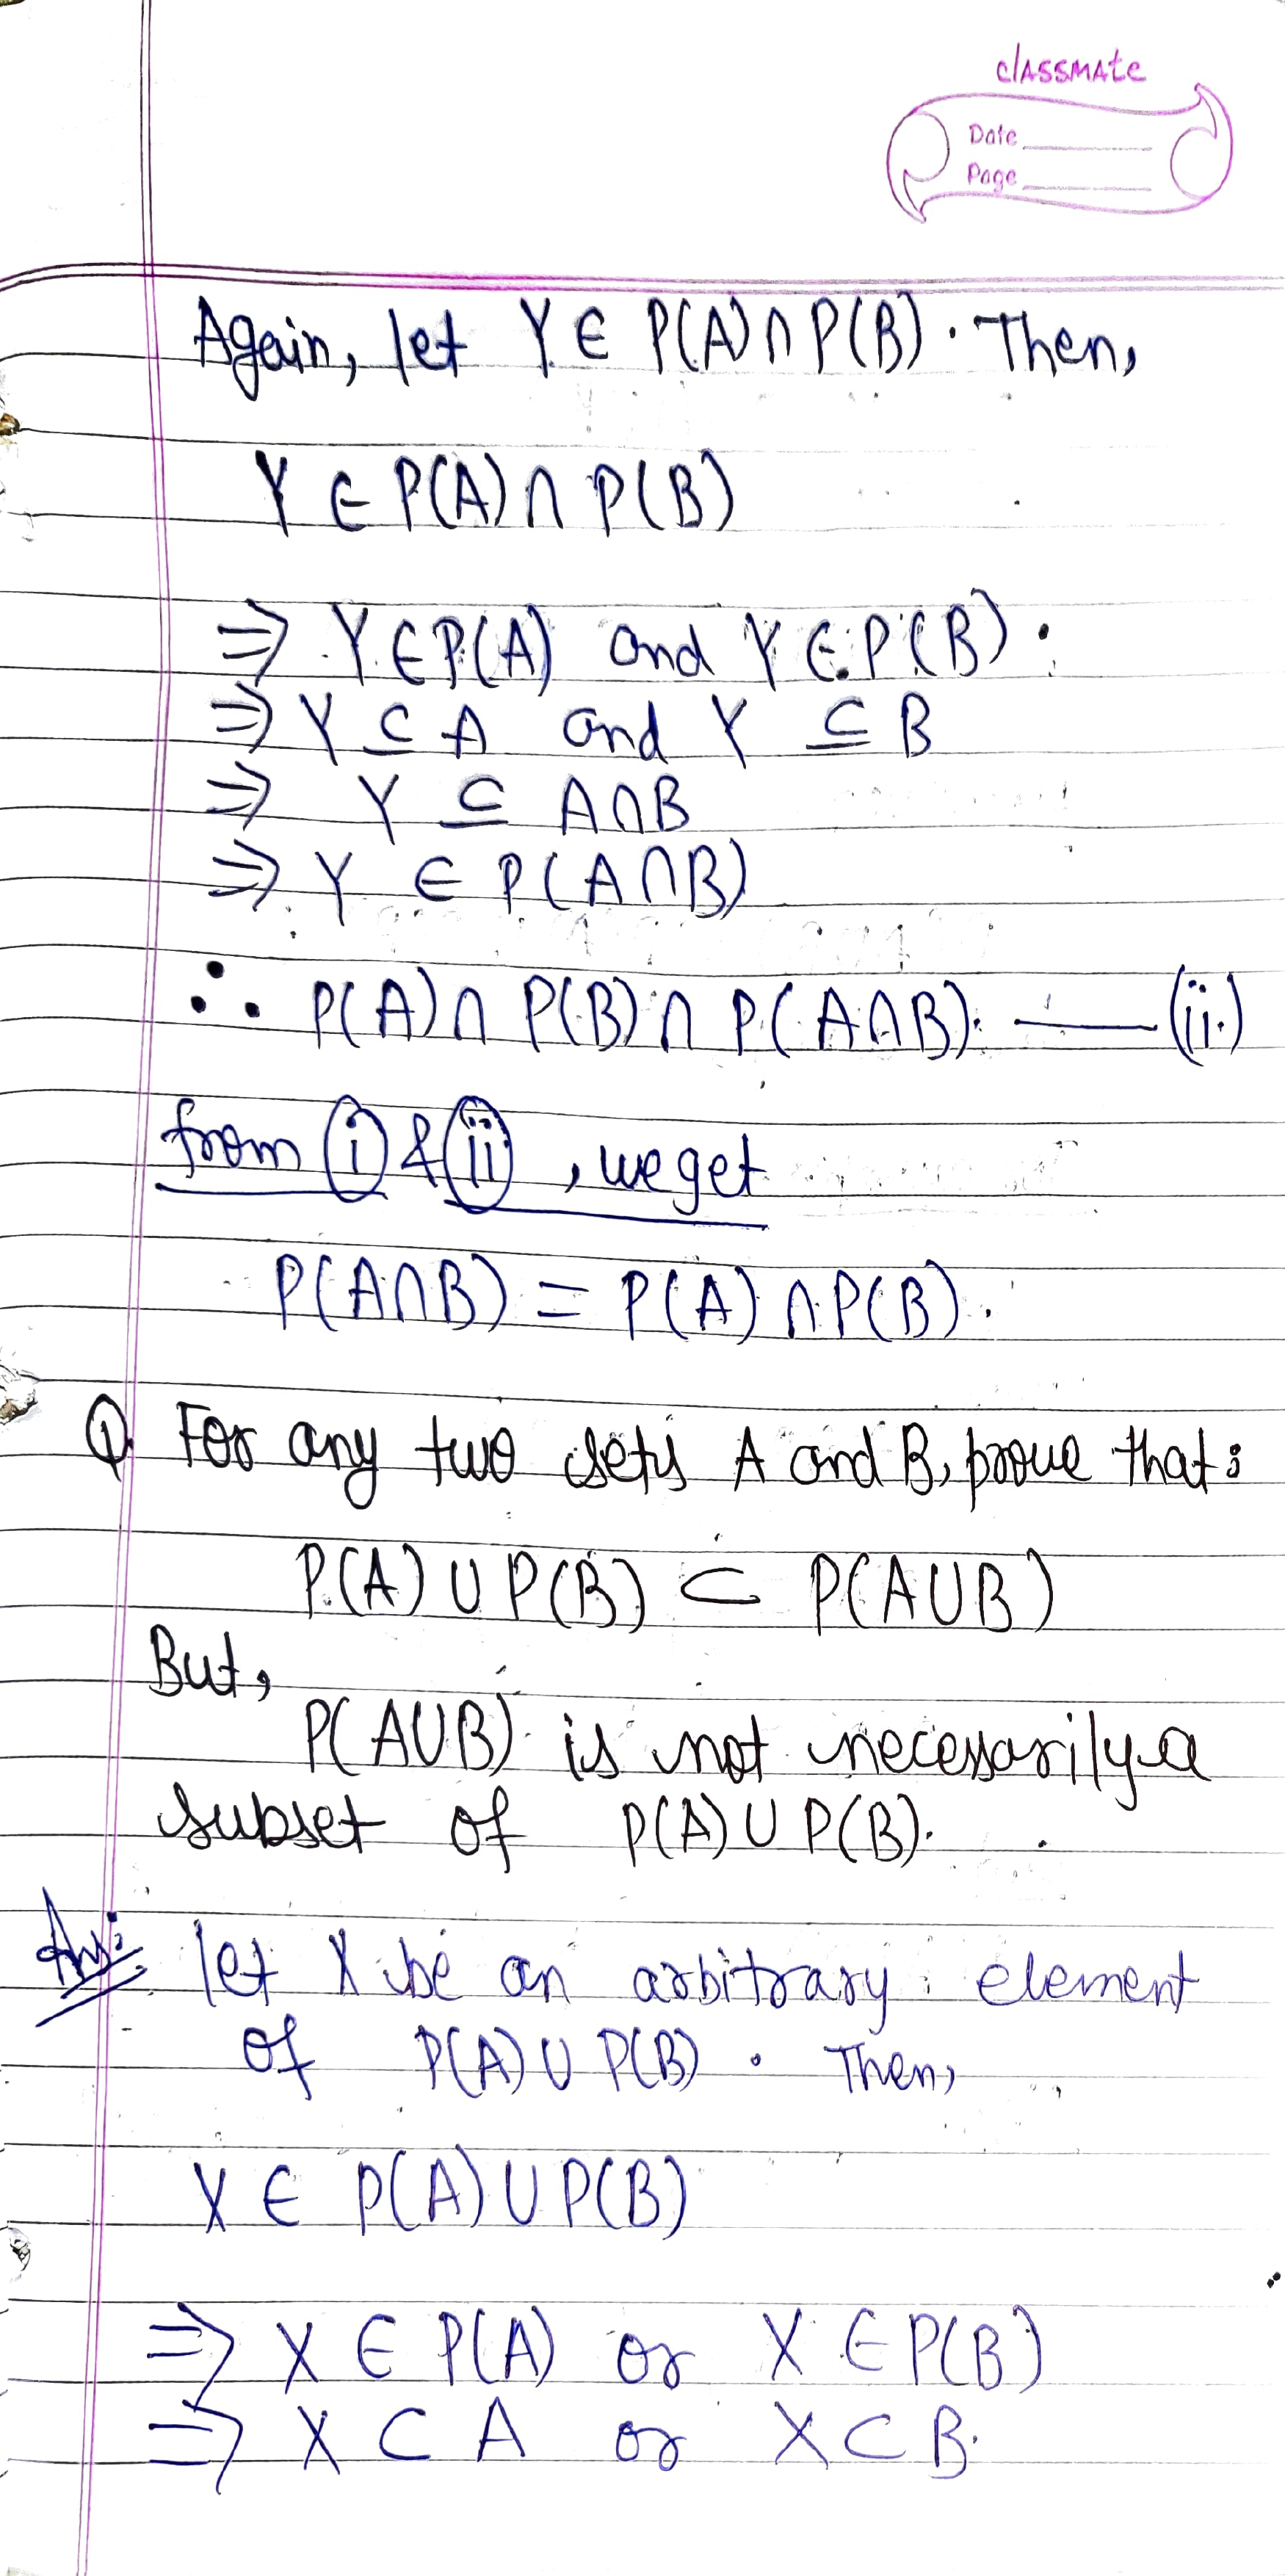 classmate
Date
Page
Again, let Y ∈ P(A) ∩ P(B). Then,
Y ∈ P(A) ∩ P(B)
⇒ Y ∈ P(A) and Y ∈ P(B).
⇒ Y ⊆ A and Y ⊆ B
⇒ Y ⊆ A∩B
⇒ Y ∈ P(A∩B)
∴ P(A) ∩ P(B) ∩ P(A∩B). — (ii)
from (i) & (ii), we get
P(A∩B) = P(A) ∩ P(B).
Q. For any two sets A and B, prove that:
P(A) ∪ P(B) ⊂ P(A∪B)
But,
P(A∪B) is not necessarily a
subset of P(A) ∪ P(B).
Ans: let X be an arbitrary element
of P(A) ∪ P(B). Then,
X ∈ P(A) ∪ P(B)
⇒ X ∈ P(A) or X ∈ P(B)
⇒ X ⊂ A or X ⊂ B.